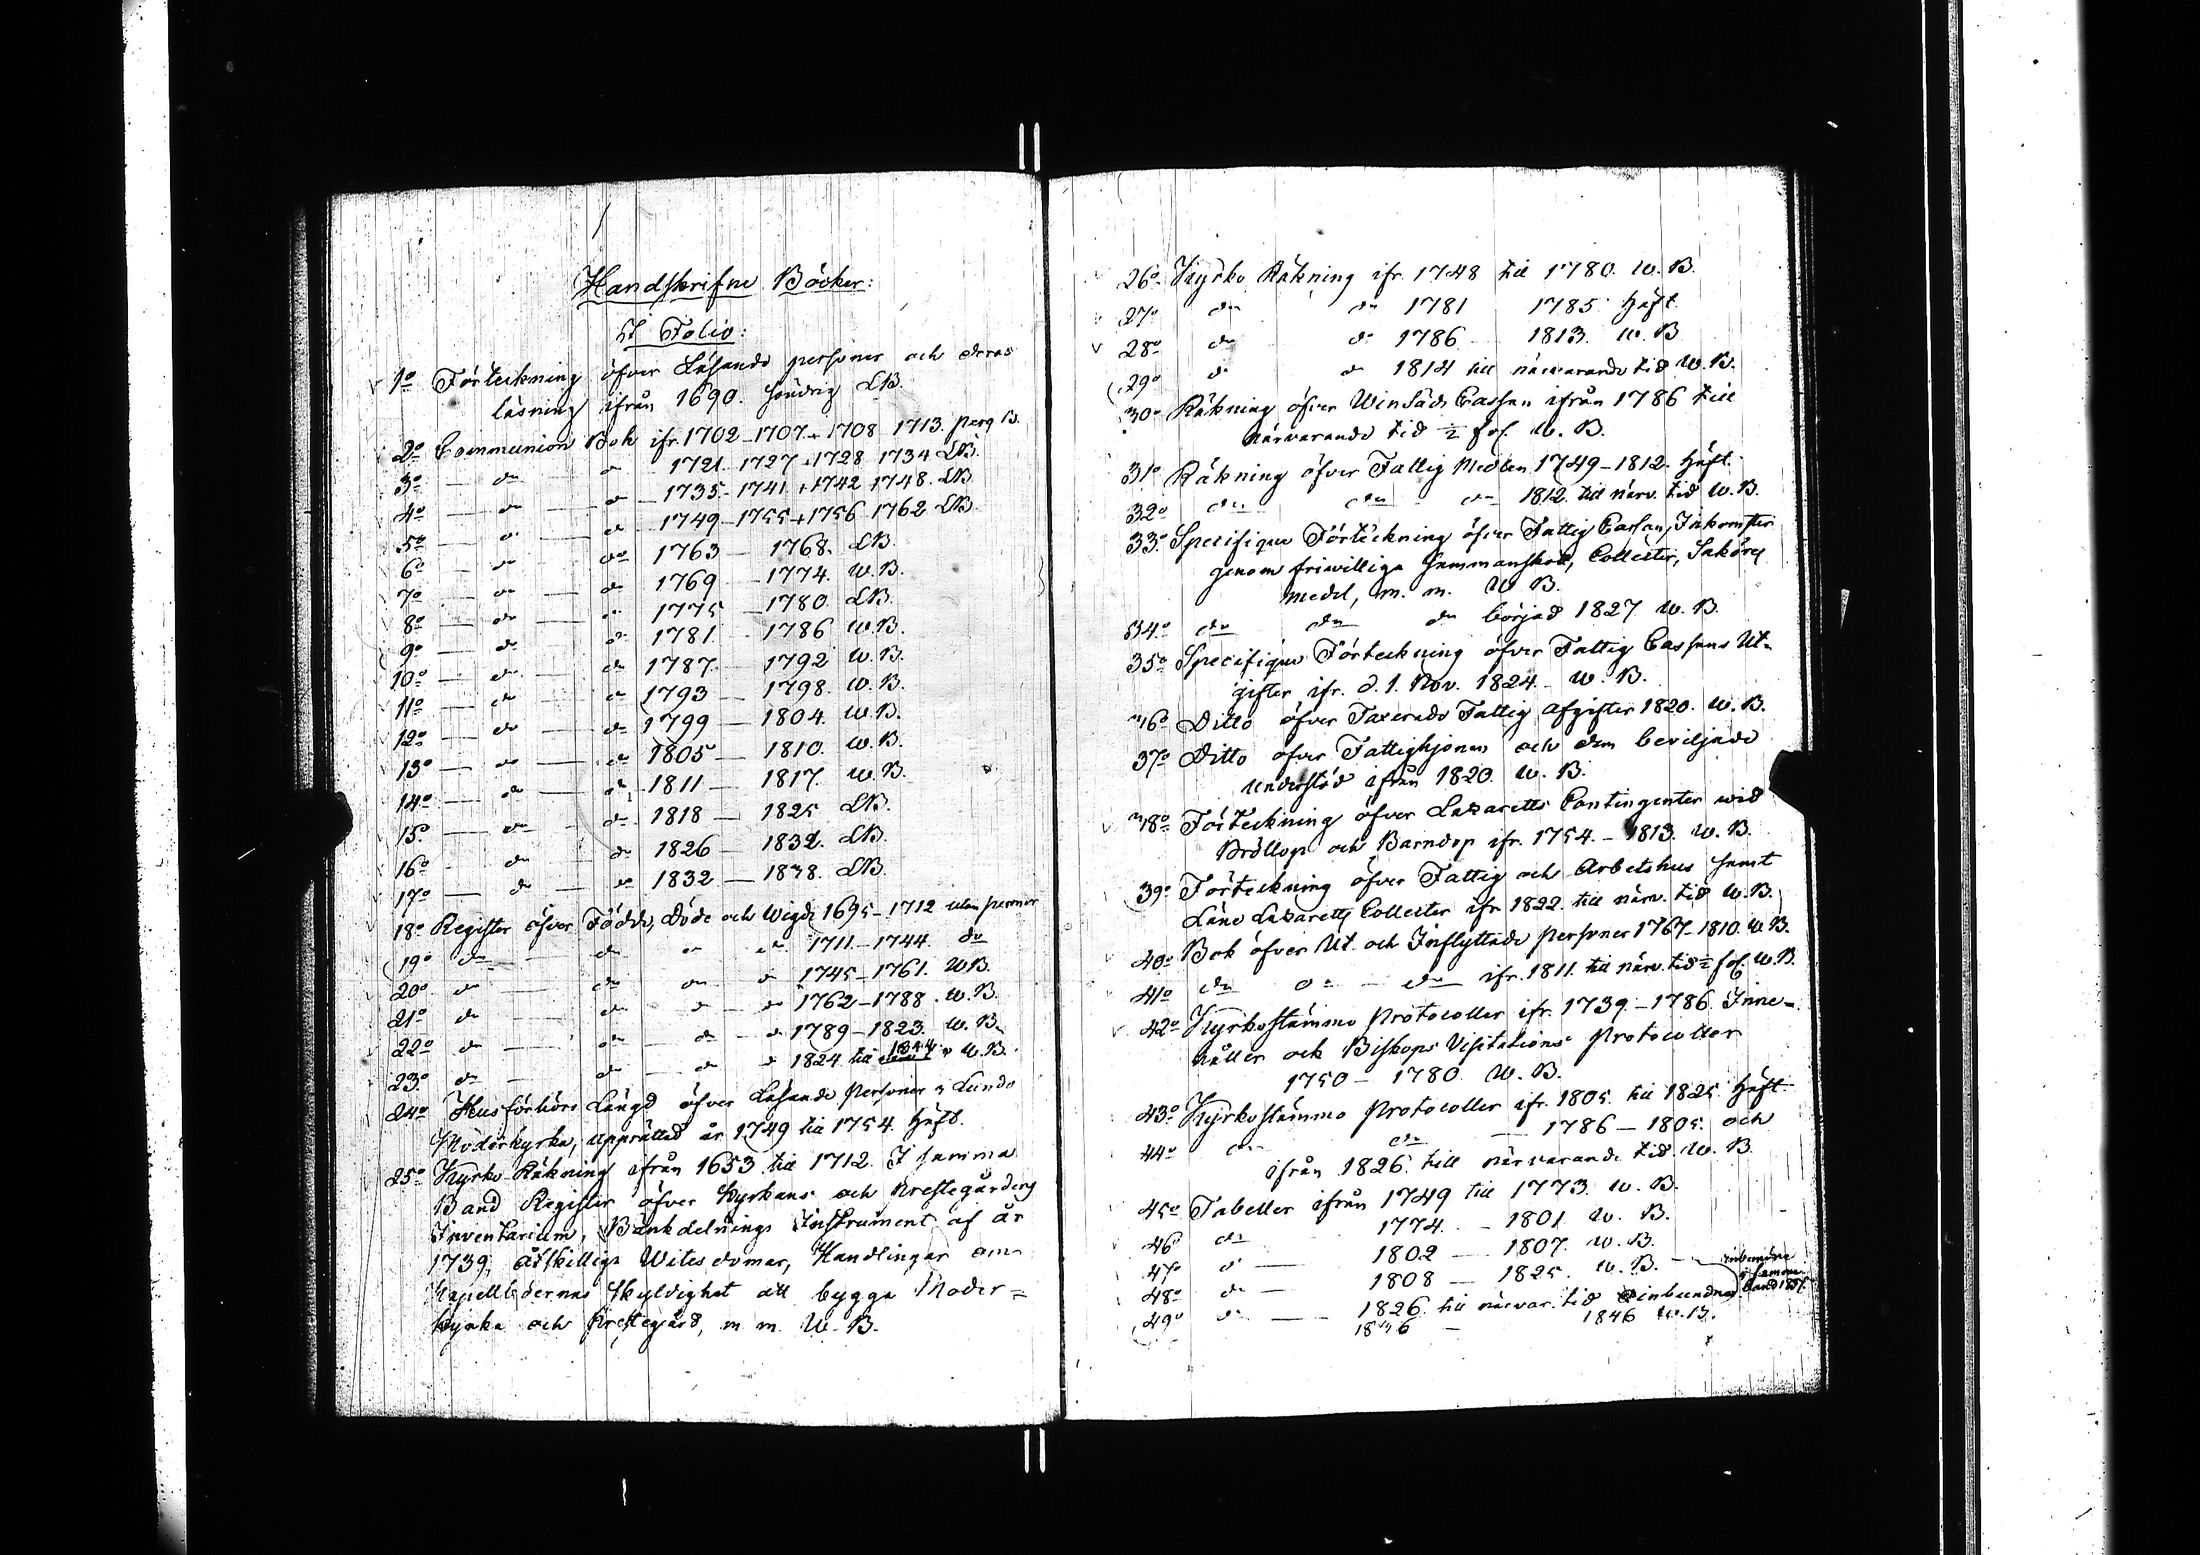 Handskrifne Böcker:
I Folio:
1º Förteckning öfver Läsande personer och deras
läsning ifrån 1690. Söndrig LB.
2º Communion Bok ifr. 1702-1707 + 1708 1713. perg B.
3º — do — do 1721-1727 + 1728 1734 LB.
4º — do — do — 1735-1741 + 1742 1748. LB
5º — do — do 1749-1755 + 1756 1762 LB
6º — do — do 1763 — 1768. LB.
7º — do — do 1769 — 1774. W.B.
8º — do — do 1775 — 1780. LB.
9º — do — do 1781 — 1786 W.B.
10º — do — do 1787 — 1792 W.B.
11º — do — do 1793 — 1798. W.B.
12º — do — do 1799 — 1804. W.B.
13º — do — do 1805 — 1810. W.B.
14º — do — do 1811 — 1817. W.B.
15º — do — do 1818 — 1825 LB.
16º — do — do 1826 — 1832. LB.
17º — do — do 1832 — 1838. LB.
18º Register öfver Födde, Döde och Wigde 1695-1712 utan permer
19º do — do do do 1711-1744. do
20º do — do do do 1745-1761. WB.
21º do — do do do 1762-1788. W.B.
22º do — do do do 1789-1823. W.B.
23º do — do do do 1824 till 1844 W.B.
24º Husförhörs Längd öfver Läsande Personer i Lundo
Moderkyrka, upprättad år 1749 till 1754. Häft.
25º Kyrko Räkning ifrån 1653 till 1712. I samma
Band Register öfver Kyrkans och Prestegårdens
Inventarium, Bänkdelnings Instrument af år
1739, åtskillige Wites domar, Handlingar om
Kapellboernas skyldighet att bygga Moder=
kyrka och Prestegård, m m. W.B.
26º Kyrko Räkning ifr. 1748 till 1780. W.B.
27º do do 1781 1785 Häft.
28º do do 1786 — 1813. W.B
29º do do 1814 till närvarande tid W.B.
30º Räkning öfver Winsäds Cassan ifrån 1786 till
närvarande tid ½ fol. W.B.
31º Räkning öfver Fattig Medlen 1749-1812. Häft.
32º do do do 1812 till närv. tid W.B.
33º Specifique Förteckning öfver Fattig Cassans Inkomster
genom friwillige Sammanskott, Collecter, Saköres
medel, m. m. W B.
34º do do do börjad 1827 W.B.
35º Specifique Förteckning öfver Fattig Cassans Ut=
gifter ifr. d. 1. Nov. 1824. W.B.
36º Ditto öfver Taxerade Fattig afgifter 1820. W.B.
37º Ditto öfver Fattighjonen och dem beviljade
Understöd ifrån 1820. W.B.
38º Förteckning öfver Lazaretts Contingenter wid
Bröllop och Barndop ifr. 1754.-1813. W.B.
39º Förteckning öfver Fattig och Arbetshus samt
Läne Lazaretts Collecter ifr 1822. till närv. tid W.B.
40º Bok öfver Ut och Inflyttade personer 1767-1810. W.B.
41º do do do ifr. 1811. till närv. tid ½ fol. W.B.
42º Kyrkostämmo Protocoller ifr. 1739.-1786. Inne=
håller och Biskops Visitations Protocoller
1750 — 1780. W.B.
43º Kyrkostämmo Protocoller ifr. 1805. till 1825. Häft.
44º do do — 1786 — 1805. och
ifrån 1826. till närvarande tid. W.B.
45º Tabeller ifrån 1749 till 1773. W.B.
46º do 1774. — 1801 W.B.
47º do — 1802 — 1807. W.B.
48º do — 1808 — 1825. W.B. — inbundne
i samma
band 1857.
49º do — 1826. till närvar. tid inbundna
1846 — 1846 W.B.